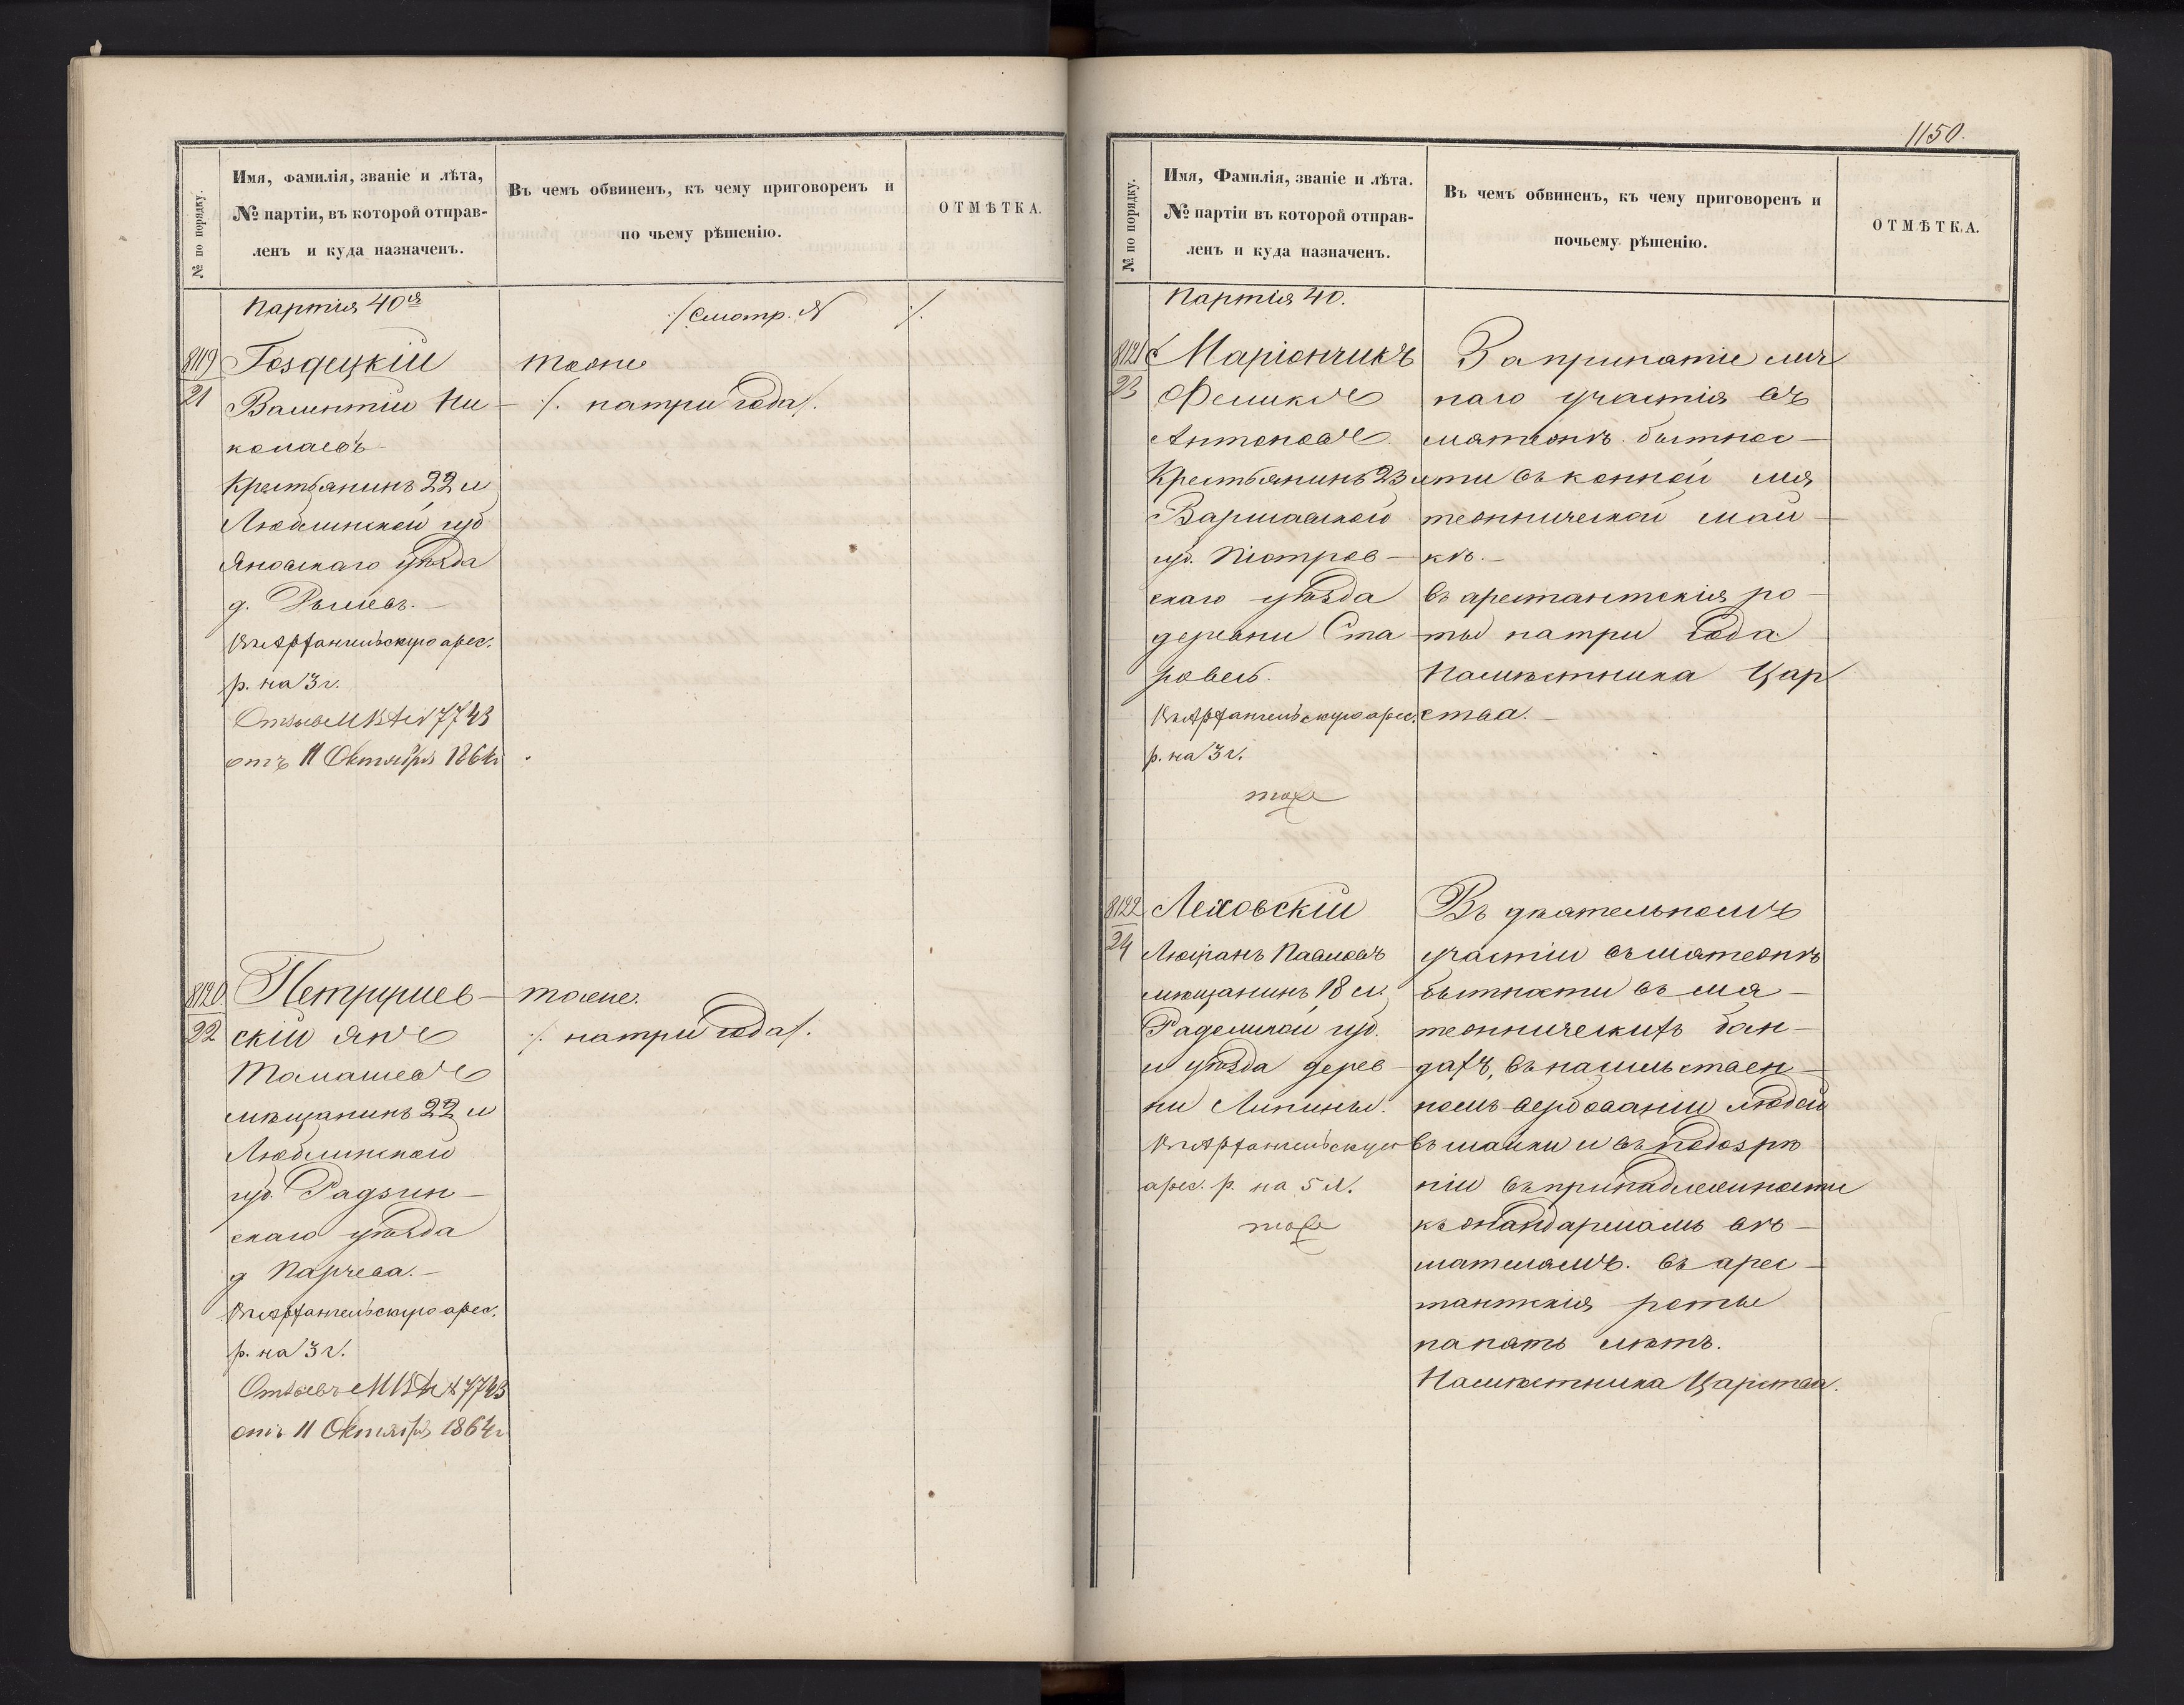 № по порядку.
Имя, Фамилія, званіе и лѣта,
№ партіи, въ которой отправ-
ленъ и куда назначенъ.
Въ чемъ обвиненъ, къ чему приговоренъ и
по чьему рѣшенію.
ОТМѢТКА.
Партія 40я
·/· смотр. № ·/·
8119
21
Гоздецкій
Валентій Ни-
колаевъ
Крестьянинъ 22 л
Люблинской губ
Яновскаго уѣзда
д.
Въ Архангельскую арес.
р. на 3 г.
Отзывъ № 7743
отъ 11 Октября 1864 г
тоже
·/· на три года ·/·
8120
22
Петрушев-
скій Янъ
Томашевъ
мѣщанинъ 22 л
Люблинской
губ. Радзин-
скаго уѣзда
д Парчева.-
Въ Архангельскую арес.
р. на 3 г.
Отзывъ № 7743
отъ 11 Октября 1864 г
тоже.
·/· на три года ·/·
1150.
№ по порядку.
Имя, Фамилія, званіе и лѣта.
№ партіи въ которой отправ-
ленъ и куда назначенъ.
Въ чемъ обвиненъ, къ чему приговоренъ и
почьему рѣшенію.
ОТМѢТКА.
Партія 40.
8121
23
Маріончикъ
Феликсъ
Антоновъ
Крестьянинъ 23 л
Варшавской
губ. Піотров-
скаго уѣзда
деревни Ста-
ровесь.
Въ Архангельскую арес.
р. на 3 г.
тоже
За принатіе лич
наго участія въ
мятежѣ бытнос-
ти въ конной мя
тежнической шай-
кѣ.-
въ арестантскія ро-
ты на три года
Намѣстника Цар
ства.-
8122
24
Леховскій
Люціанъ Павловъ
мѣщанинъ 18 л.
Радомской губ.
и уѣзда дерев-
ни Липины.
Въ Архангельскую
арес. р. на 5 л.
тоже
Въ дѣятельномъ
участіи въ мятежѣ
бытности въ мя-
тежническихъ бан-
дахъ, въ насильствен-
номъ вербованіи людей
въ шайки и въ подозрѣ
ніи въ принадлежности
къ жандармамъ вѣ-
шателямъ. въ арес-
тантскія роты
на пять лѣтъ.
Намѣстника Царства.